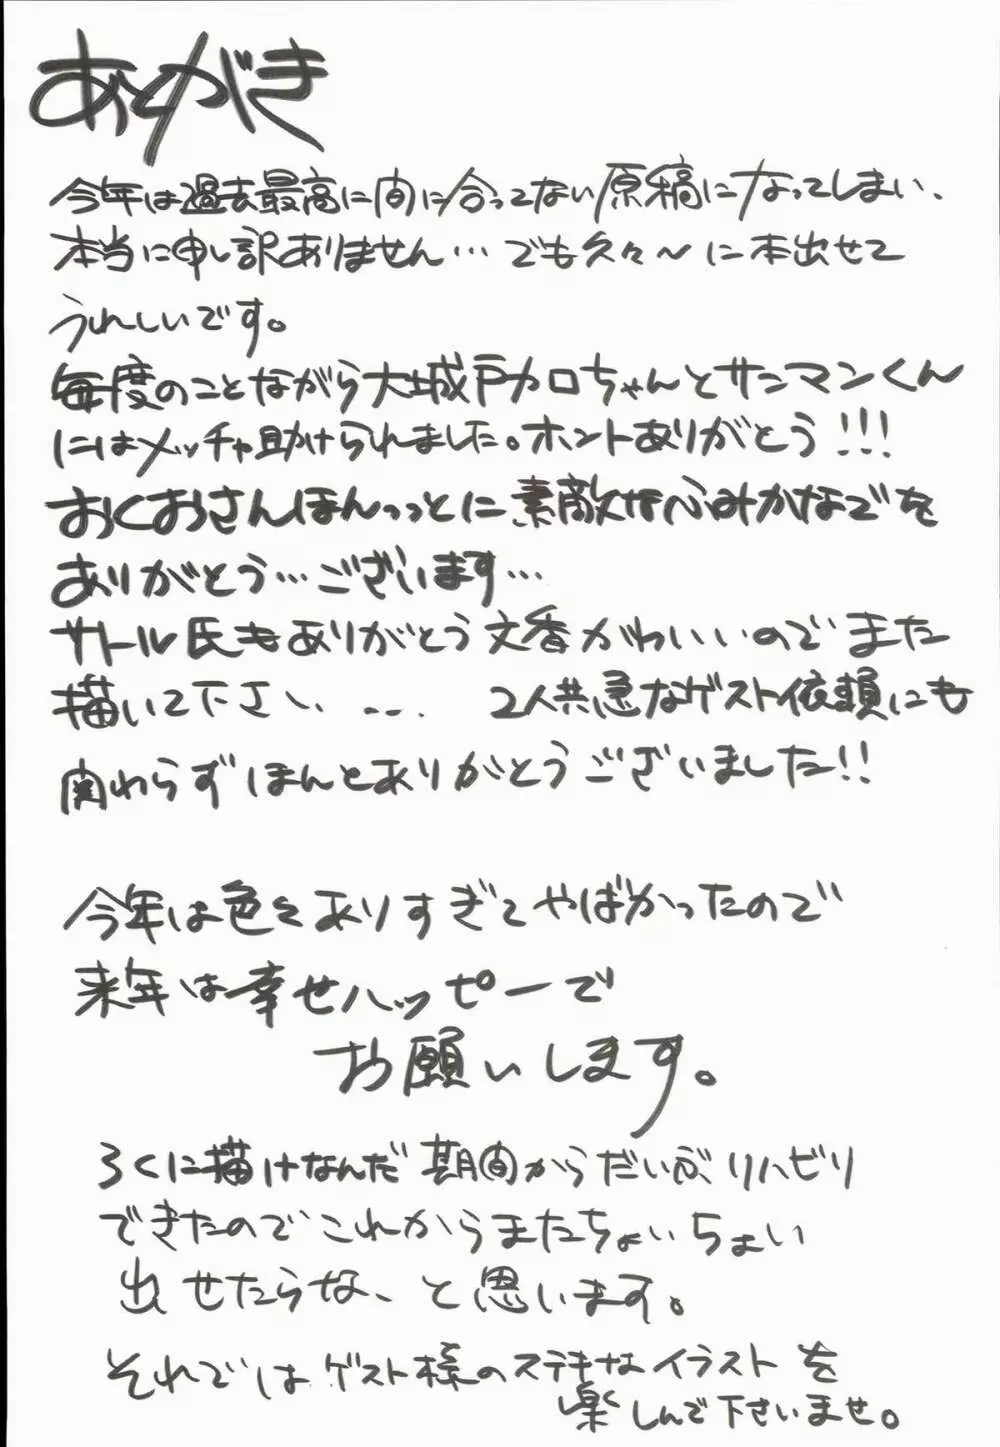 あとがき
今年は過去最高に間に合ってない原稿になってしまい、
本当に申し訳ありません…でも久々〜に本出せて
うれしいです。
毎度のことながら大城戸カロちゃんとサンマンくん
にはメッチャ助けられました。ホントありがとう!!!
おくおさんほんっっとに素敵なふみかなでを
ありがとう…ございます…
サトール氏もありがとう文香かわいいのでまた
描いて下さい、… 2人共急なゲスト依頼にも
関わらずほんとありがとうございました!!
今年は色々ありすぎてやばかったので
来年は幸せハッピーで
お願いします。
ろくに描けなんだ期間からだいぶリハビリ
できたのでこれからまたちょいちょい
出せたらな、と思います。
それではゲスト様のステキなイラストを
楽しんで下さいませ。